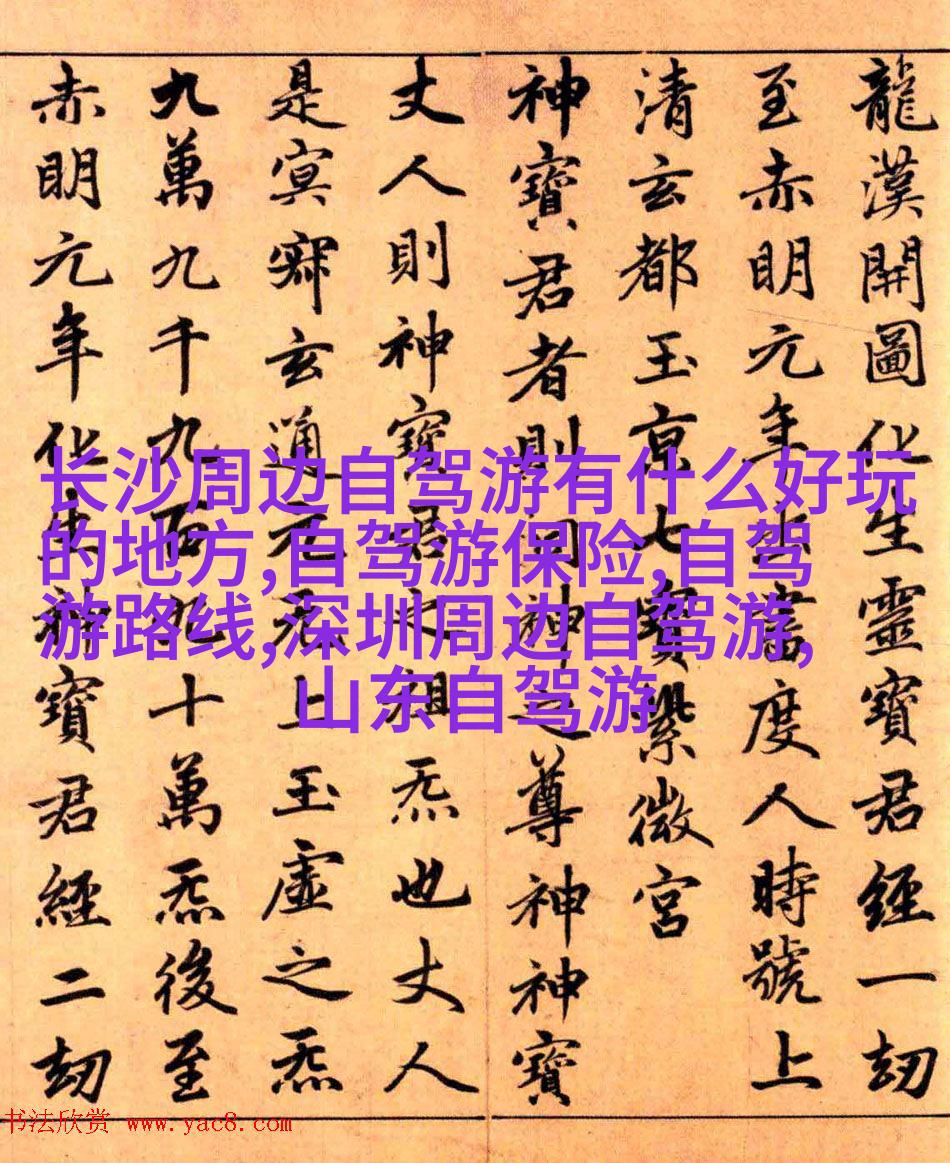 龍漢開圖化生靈寶君經一劫
至赤明元年出書度人時號上
清玄都玉京七寶紫微宮
神寶君者則洞神之尊神神寶
丈人則神寶君之祖炁也丈人
是冥寂玄通元无上玉虛之炁
九萬九千九百九十萬炁後至
赤明元年化生神寶君經二劫
长沙周边自驾游有什么好玩
的地方,自驾游保险,自驾
游路线,深圳周边自驾游,
山东自驾游
书法欣赏 www.yac8.com